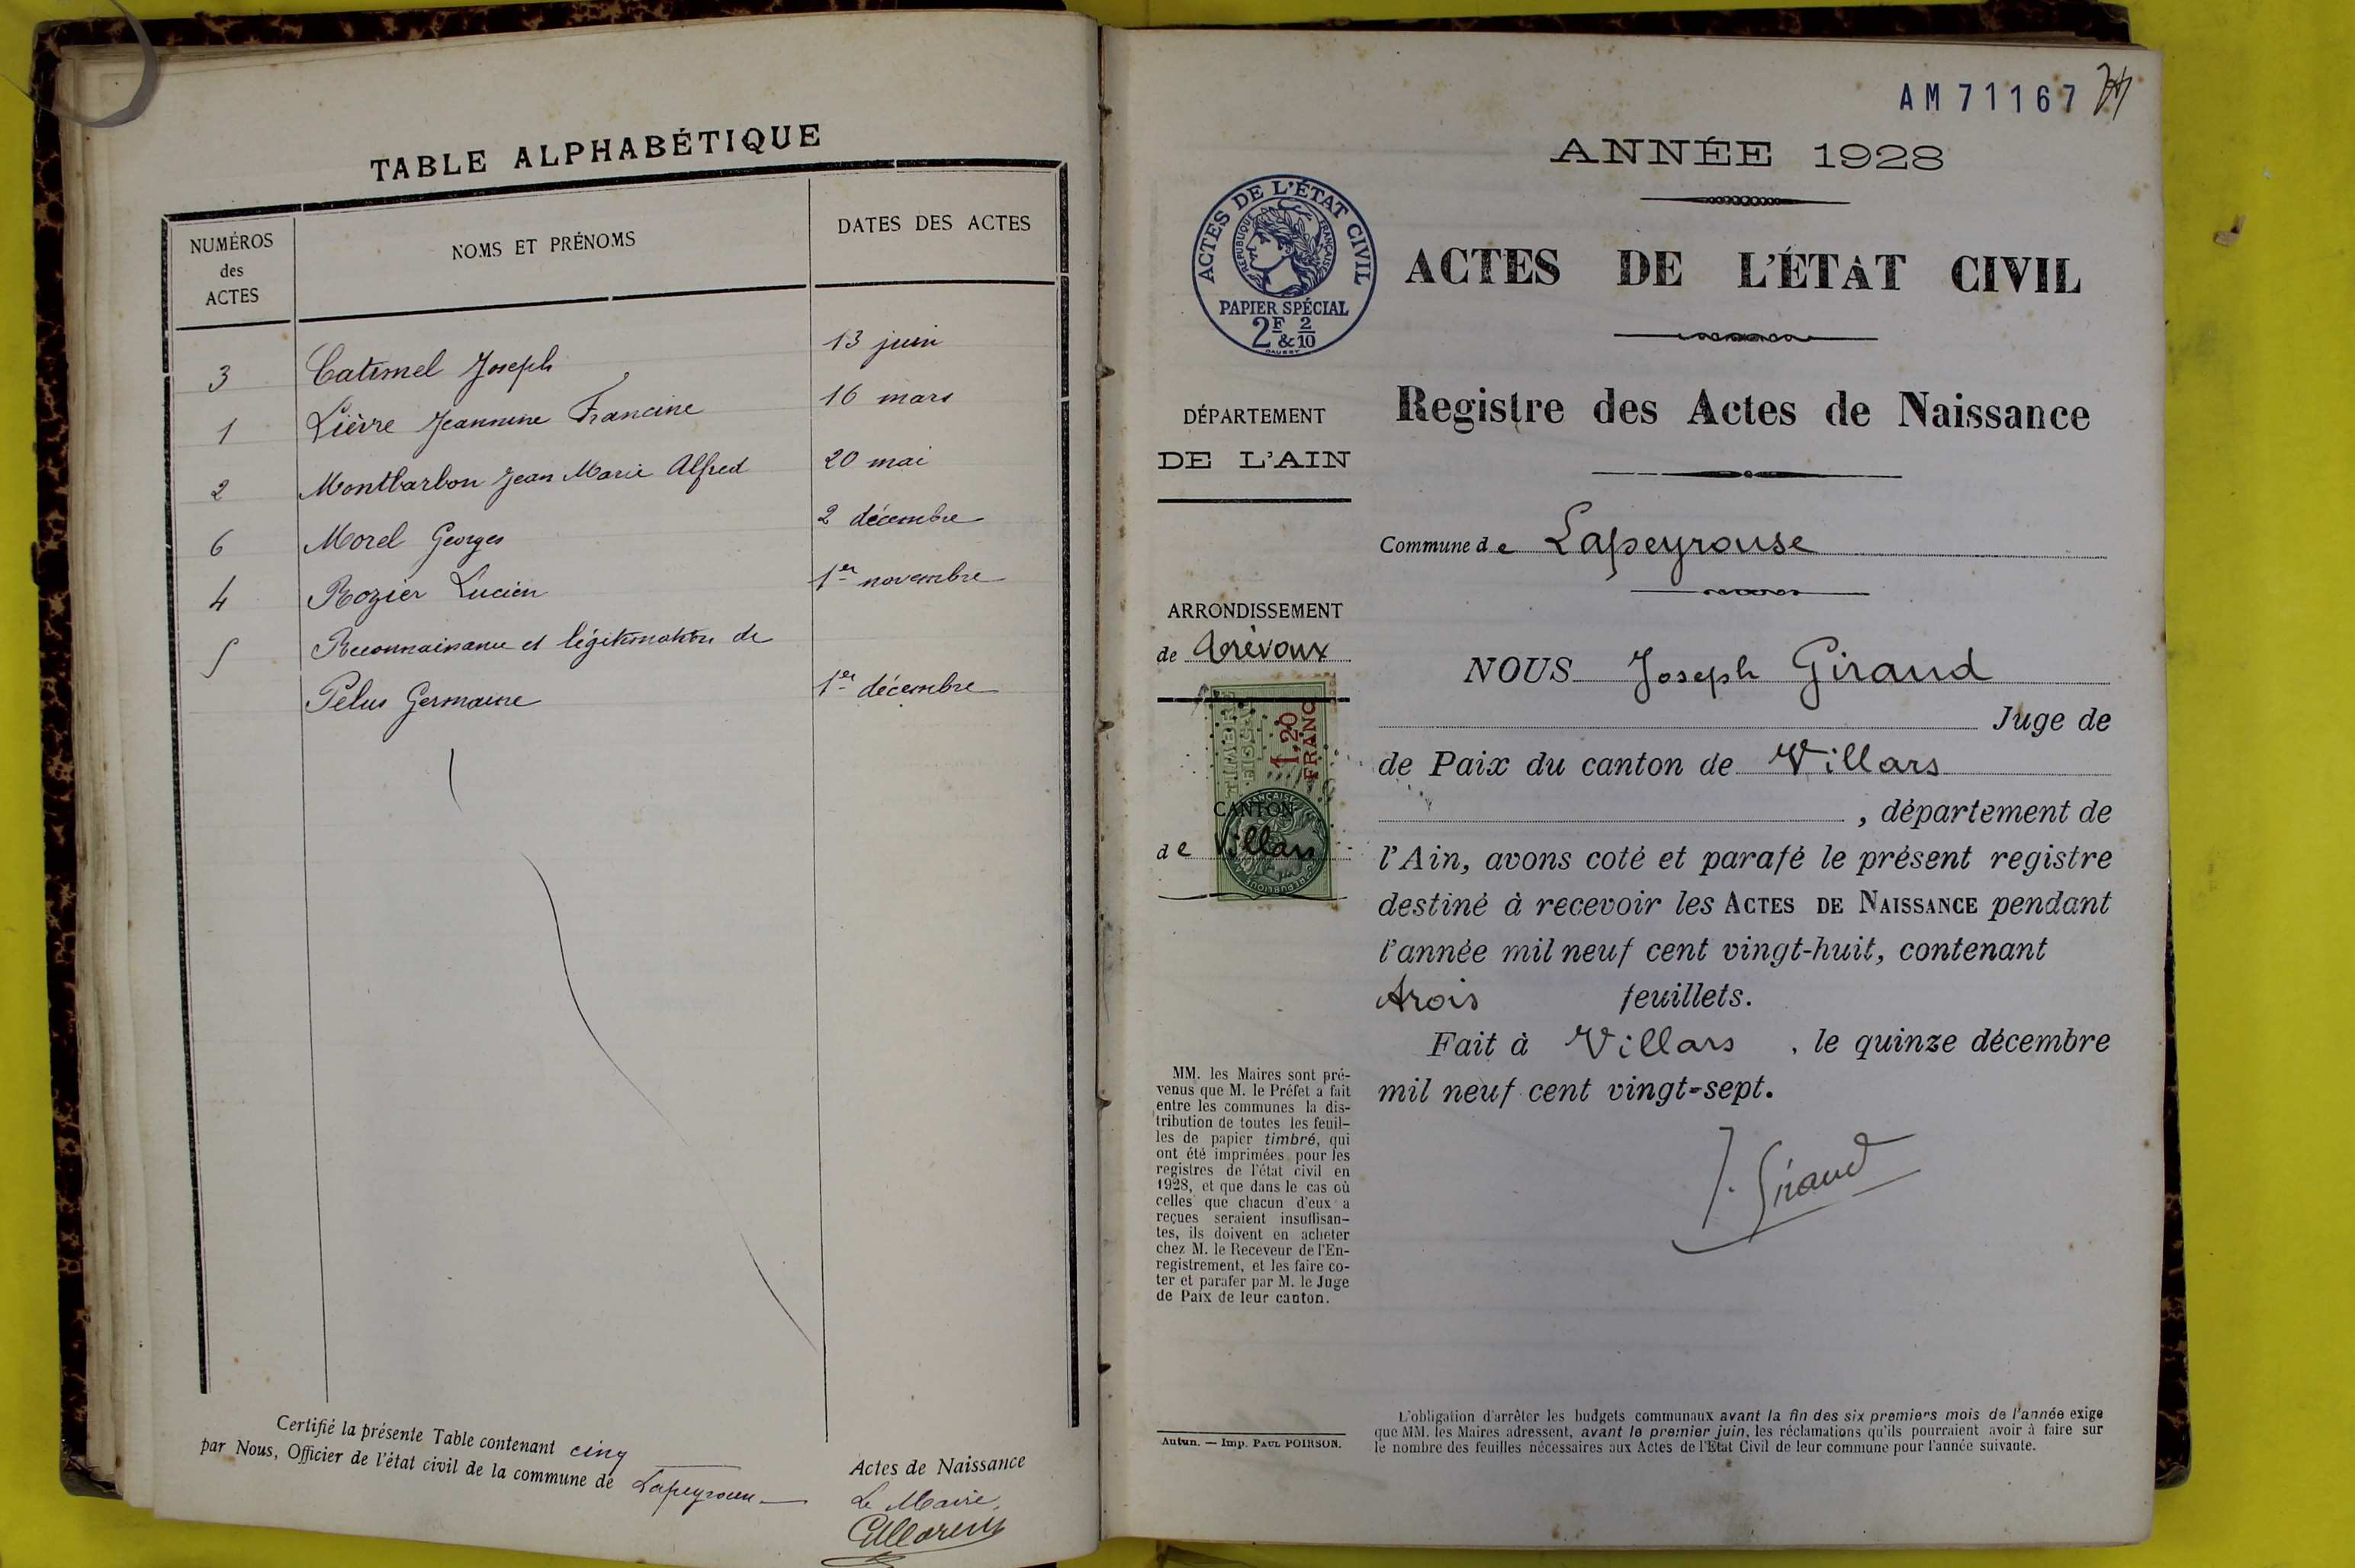 TABLE ALPHABÉTIQUE
NUMÉROS
des
ACTES
NOMS ET PRÉNOMS
DATES DES ACTES
3 Catimel Joseph 13 juin
1 Lièvre Jeannine Francine 16 mars
2 Montbarbon Jean Marie Alfred 20 mai
6 Morel Georges 2 décembre
4 Rozier Lucien 1er novembre
5 Reconnaissance et légitimation de
Pelus Germaine 1er décembre
Certifié la présente Table contenant cinq
par Nous, Officier de l'état civil de la commune de Lapeyrouse
Actes de Naissance
Le Maire,
AM 71167
ANNÉE 1928
ACTES DE L'ÉTAT CIVIL
RÉPUBLIQUE FRANÇAISE
PAPIER SPÉCIAL
2F & 2/10
ACTES DE L'ÉTAT CIVIL
Registre des Actes de Naissance
DÉPARTEMENT
DE L'AIN
Commune de Lapeyrouse
ARRONDISSEMENT
de Trévoux
TIMBRE
FISCAL
1,20
FRANC
CANTON
de Villars
NOUS Joseph Giraud
Juge de
de Paix du canton de Villars
, département de
l'Ain, avons coté et parafé le présent registre
destiné à recevoir les ACTES DE NAISSANCE pendant
l'année mil neuf cent vingt-huit, contenant
trois feuillets.
Fait à Villars, le quinze décembre
mil neuf cent vingt-sept.
J. Giraud
MM. les Maires sont pré-
venus que M. le Préfet a fait
entre les communes la dis-
tribution de toutes les feuil-
les de papier timbré, qui
ont été imprimées pour les
registres de l'état civil en
1928, et que dans le cas où
celles que chacun d'eux a
reçues seraient insuffisan-
tes, ils doivent en acheter
chez M. le Receveur de l'En-
registrement, et les faire co-
ter et parafer par M. le Juge
de Paix de leur canton.
Autun. — Imp. PAUL POIRSON.
L'obligation d'arrêter les budgets communaux avant la fin des six premiers mois de l'année exige
que MM. les Maires adressent, avant le premier juin, les réclamations qu'ils pourraient avoir à faire sur
le nombre des feuilles nécessaires aux Actes de l'Etat Civil de leur commune pour l'année suivante.